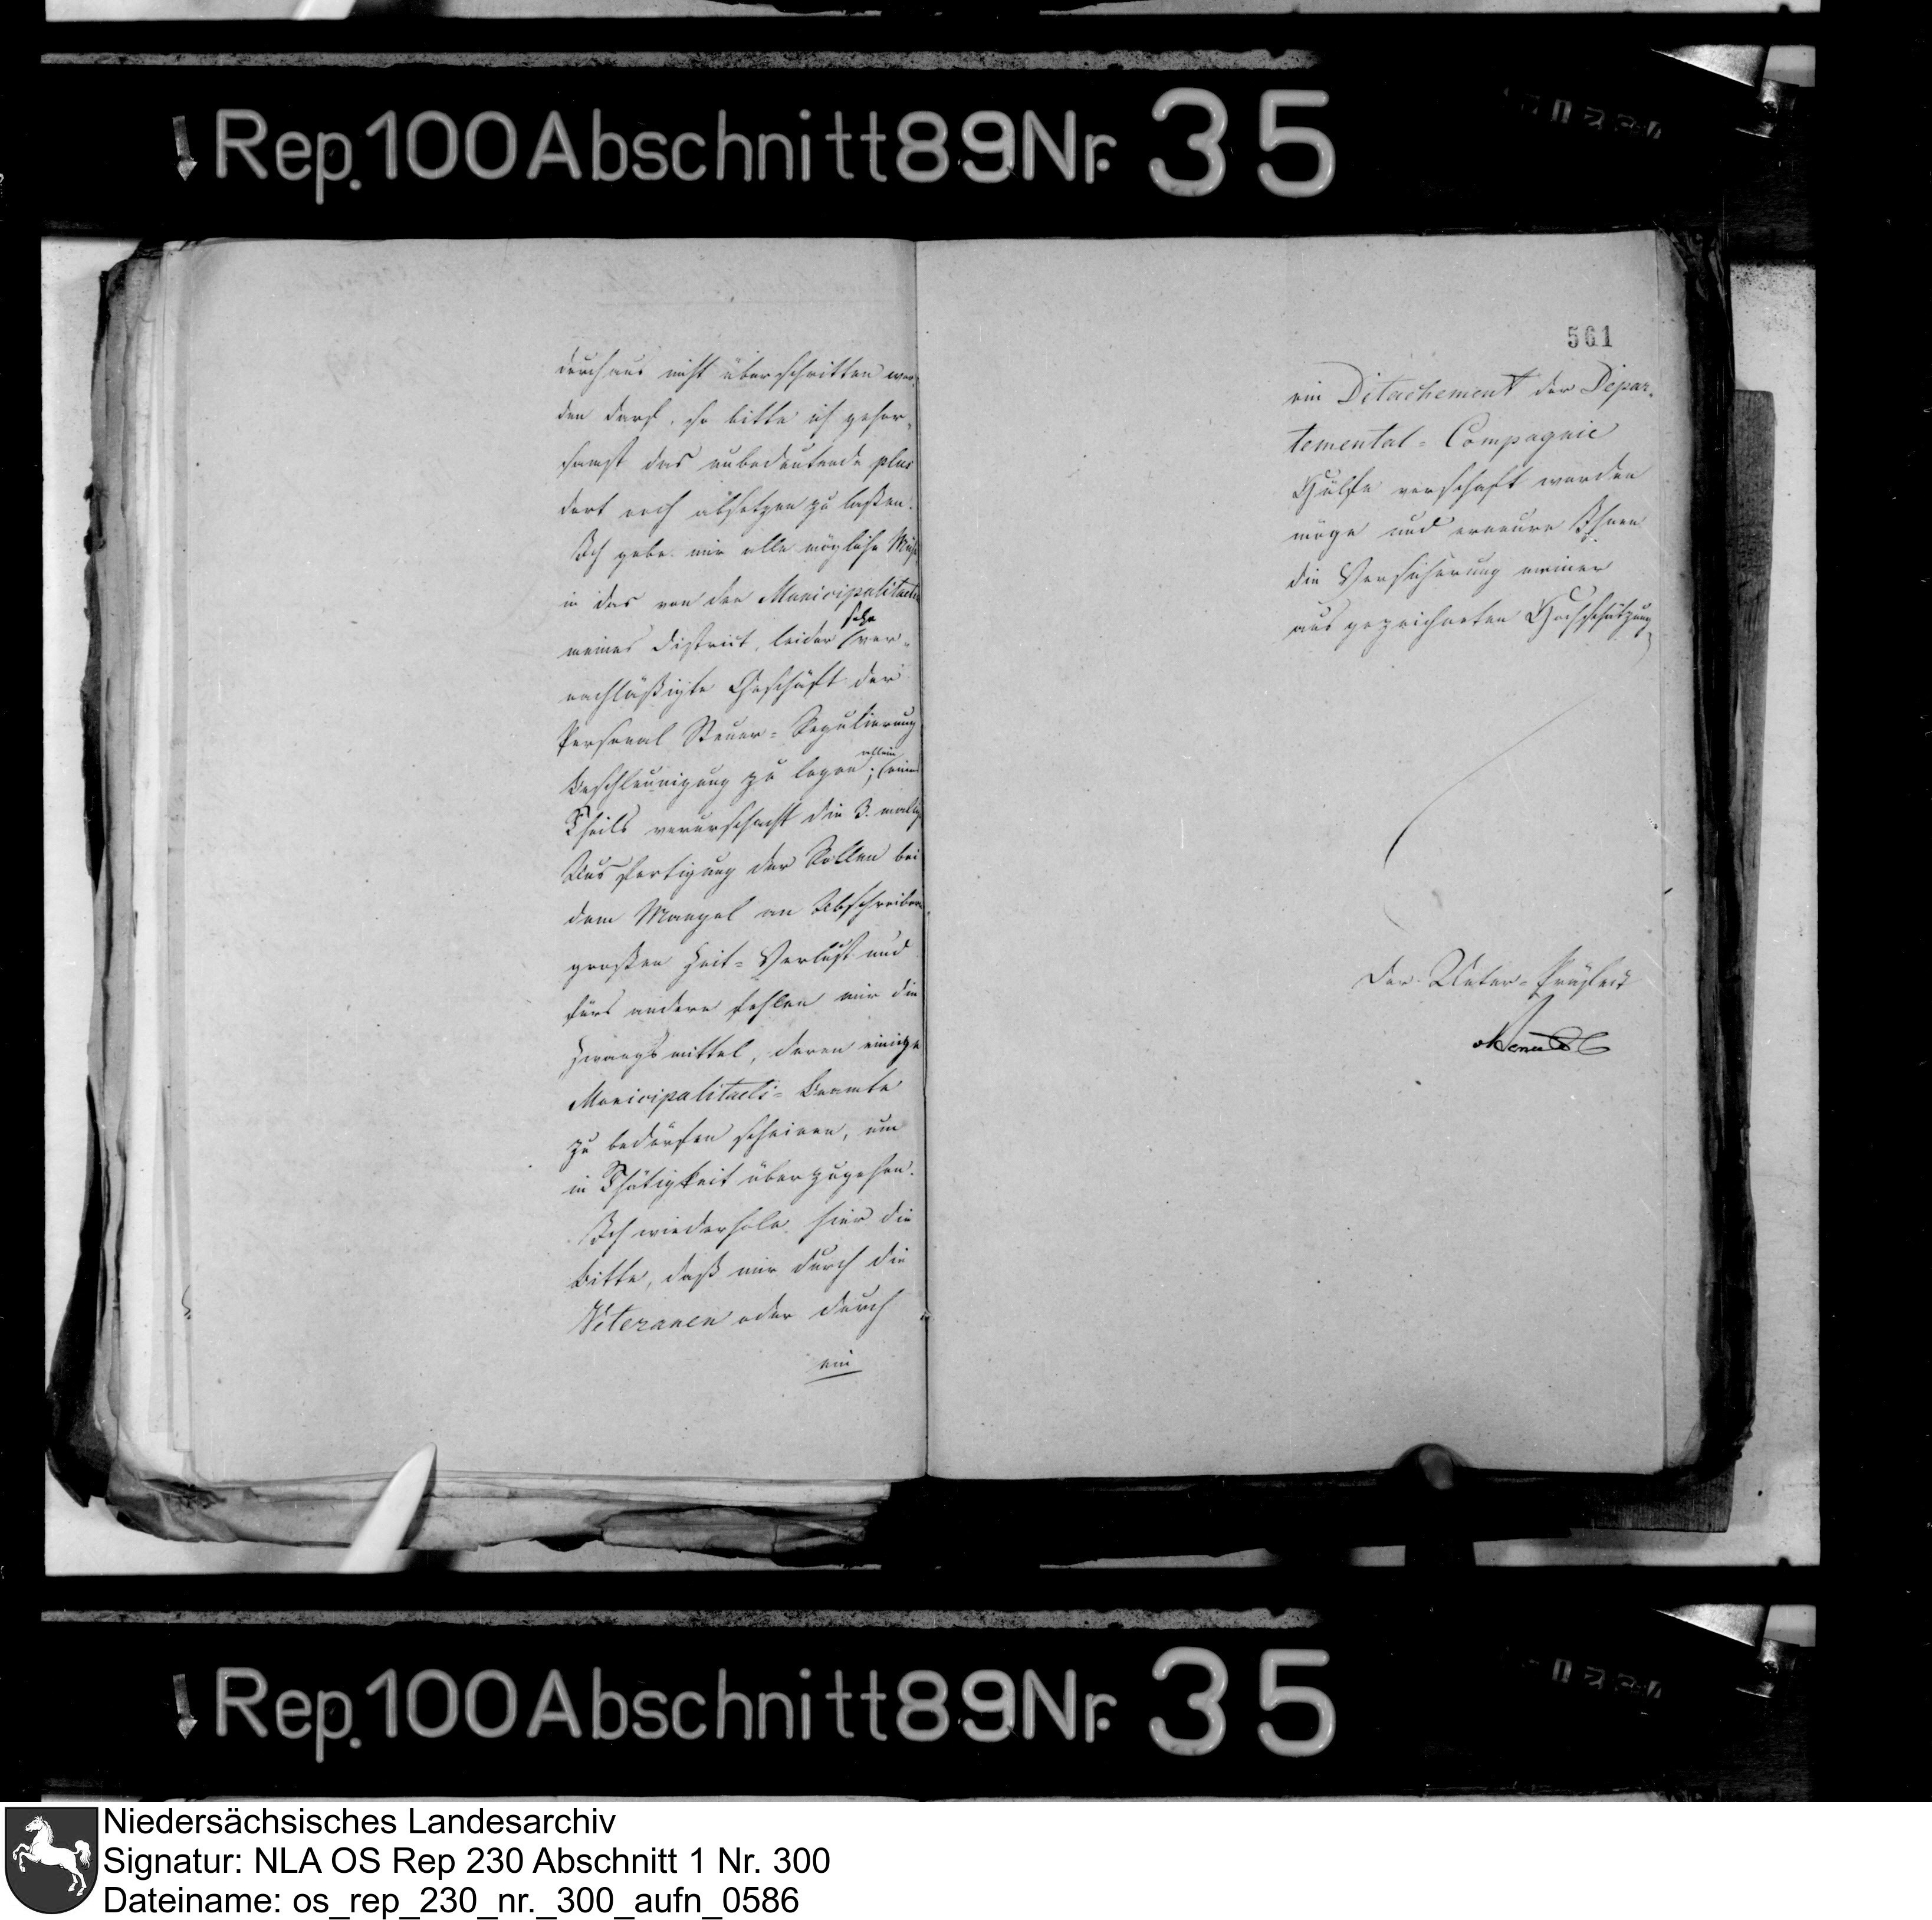 Rep. 100 Abschnitt 89 Nr. 35
durchaus nicht überschritten wer-
den darf, so bitte ich gehor-
samst das unbedeutende plus
dort noch absetzen zu laßen.
Ich gebe mir alle mögliche Mühe
in das von den Municipalitaeten
meines District, leider sehr ver-
nachläßigte Geschäft der
Personal Steuer-Regulierung
Beschleunigung zu legen; allein eines
Theils verursacht die 3. malige
Ausfertigung der Rollen bei
dem Mangel an Abschreibern
großen Zeit-Verlust und
fürs andere fehlen mir die
Zwangsmittel, deren einige
Municipalitaets-Beamte
zu bedürfen scheinen, um
in Thätigkeit überzugehen.
Ich wiederhole hier die
Bitte, daß mir durch die
Veteranen oder durch
ein
561
ein Détachement der Depar-
temental-Compagnie
Hülfe verschaft werden
möge und erneure Ihnen
die Versicherung meiner
ausgezeichneten Hochschätzung
Der Unter-Präfect
Rep. 100 Abschnitt 89 Nr. 35
Niedersächsisches Landesarchiv
Signatur: NLA OS Rep 230 Abschnitt 1 Nr. 300
Dateiname: os_rep_230_nr._300_aufn_0586